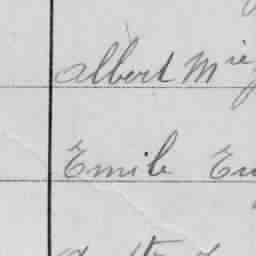 Albert Mie
Emile Eu